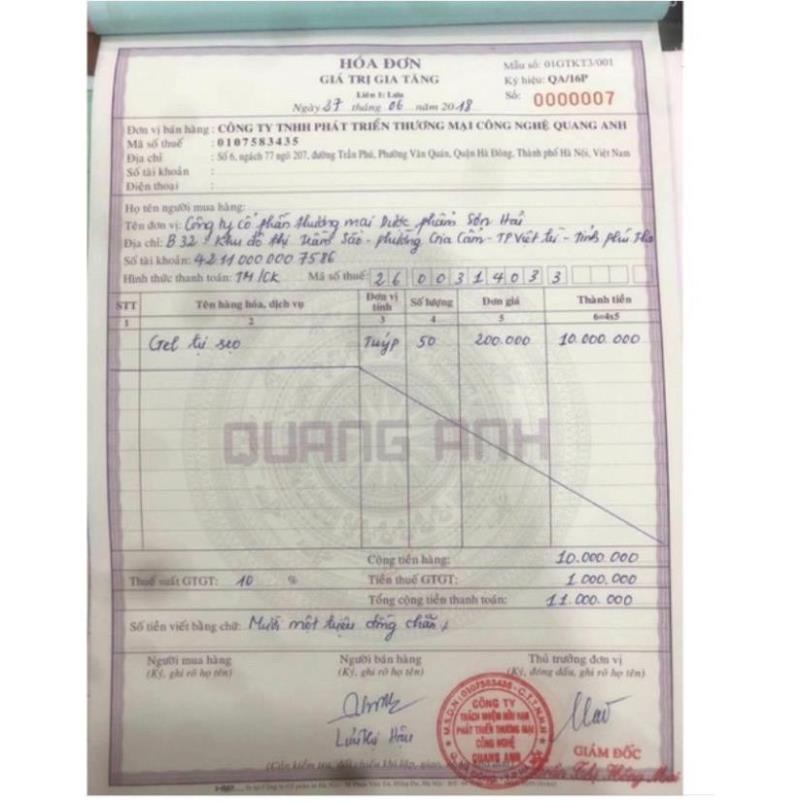 HÓA ĐƠN
GIÁ TRỊ GIA TĂNG
Liên 1: Lưu
Ngày 27 tháng 06 năm 2018
Mẫu số: 01GTKT3/001
Ký hiệu: QA/16P
Số: 0000007
Đơn vị bán hàng : CÔNG TY TNHH PHÁT TRIỂN THƯƠNG MẠI CÔNG NGHỆ QUANG ANH
Mã số thuế : 0107583435
Địa chỉ : Số 6, ngách 77 ngõ 207, đường Trần Phú, Phường Văn Quán, Quận Hà Đông, Thành phố Hà Nội, Việt Nam
Số tài khoản :
Điện thoại :
Họ tên người mua hàng:
Tên đơn vị: Công ty cổ phần thương mại Dược phẩm Sơn Hải
Địa chỉ: B32 Khu đô thị Trầm Sào - phường Gia Cẩm - TP Việt trì - Tỉnh phú Thọ
Số tài khoản: 4211000000 7586
Hình thức thanh toán: TM/CK Mã số thuế: 2600314033
STT Tên hàng hóa, dịch vụ Đơn vị tính Số lượng Đơn giá Thành tiền
1 2 3 4 5 6=4x5
Gel trị sẹo Tuýp 50 200.000 10.000.000
QUANG ANH
Cộng tiền hàng: 10.000.000
Thuế suất GTGT: 10 % Tiền thuế GTGT: 1.000.000
Tổng cộng tiền thanh toán: 11.000.000
Số tiền viết bằng chữ: Mười một triệu đồng chẵn
Người mua hàng Người bán hàng Thủ trưởng đơn vị
(Ký, ghi rõ họ tên) (Ký, ghi rõ họ tên) (Ký, đóng dấu, ghi rõ họ tên)
M.S.D.N: 0107583435 - C.T.T.N.H.H
CÔNG TY
TRÁCH NHIỆM HỮU HẠN
PHÁT TRIỂN THƯƠNG MẠI
CÔNG NGHỆ
QUANG ANH
Lưu Thị Hậu
GIÁM ĐỐC
Thị Hồng Mai
(Cần kiểm tra, đối chiếu khi lập, giao,